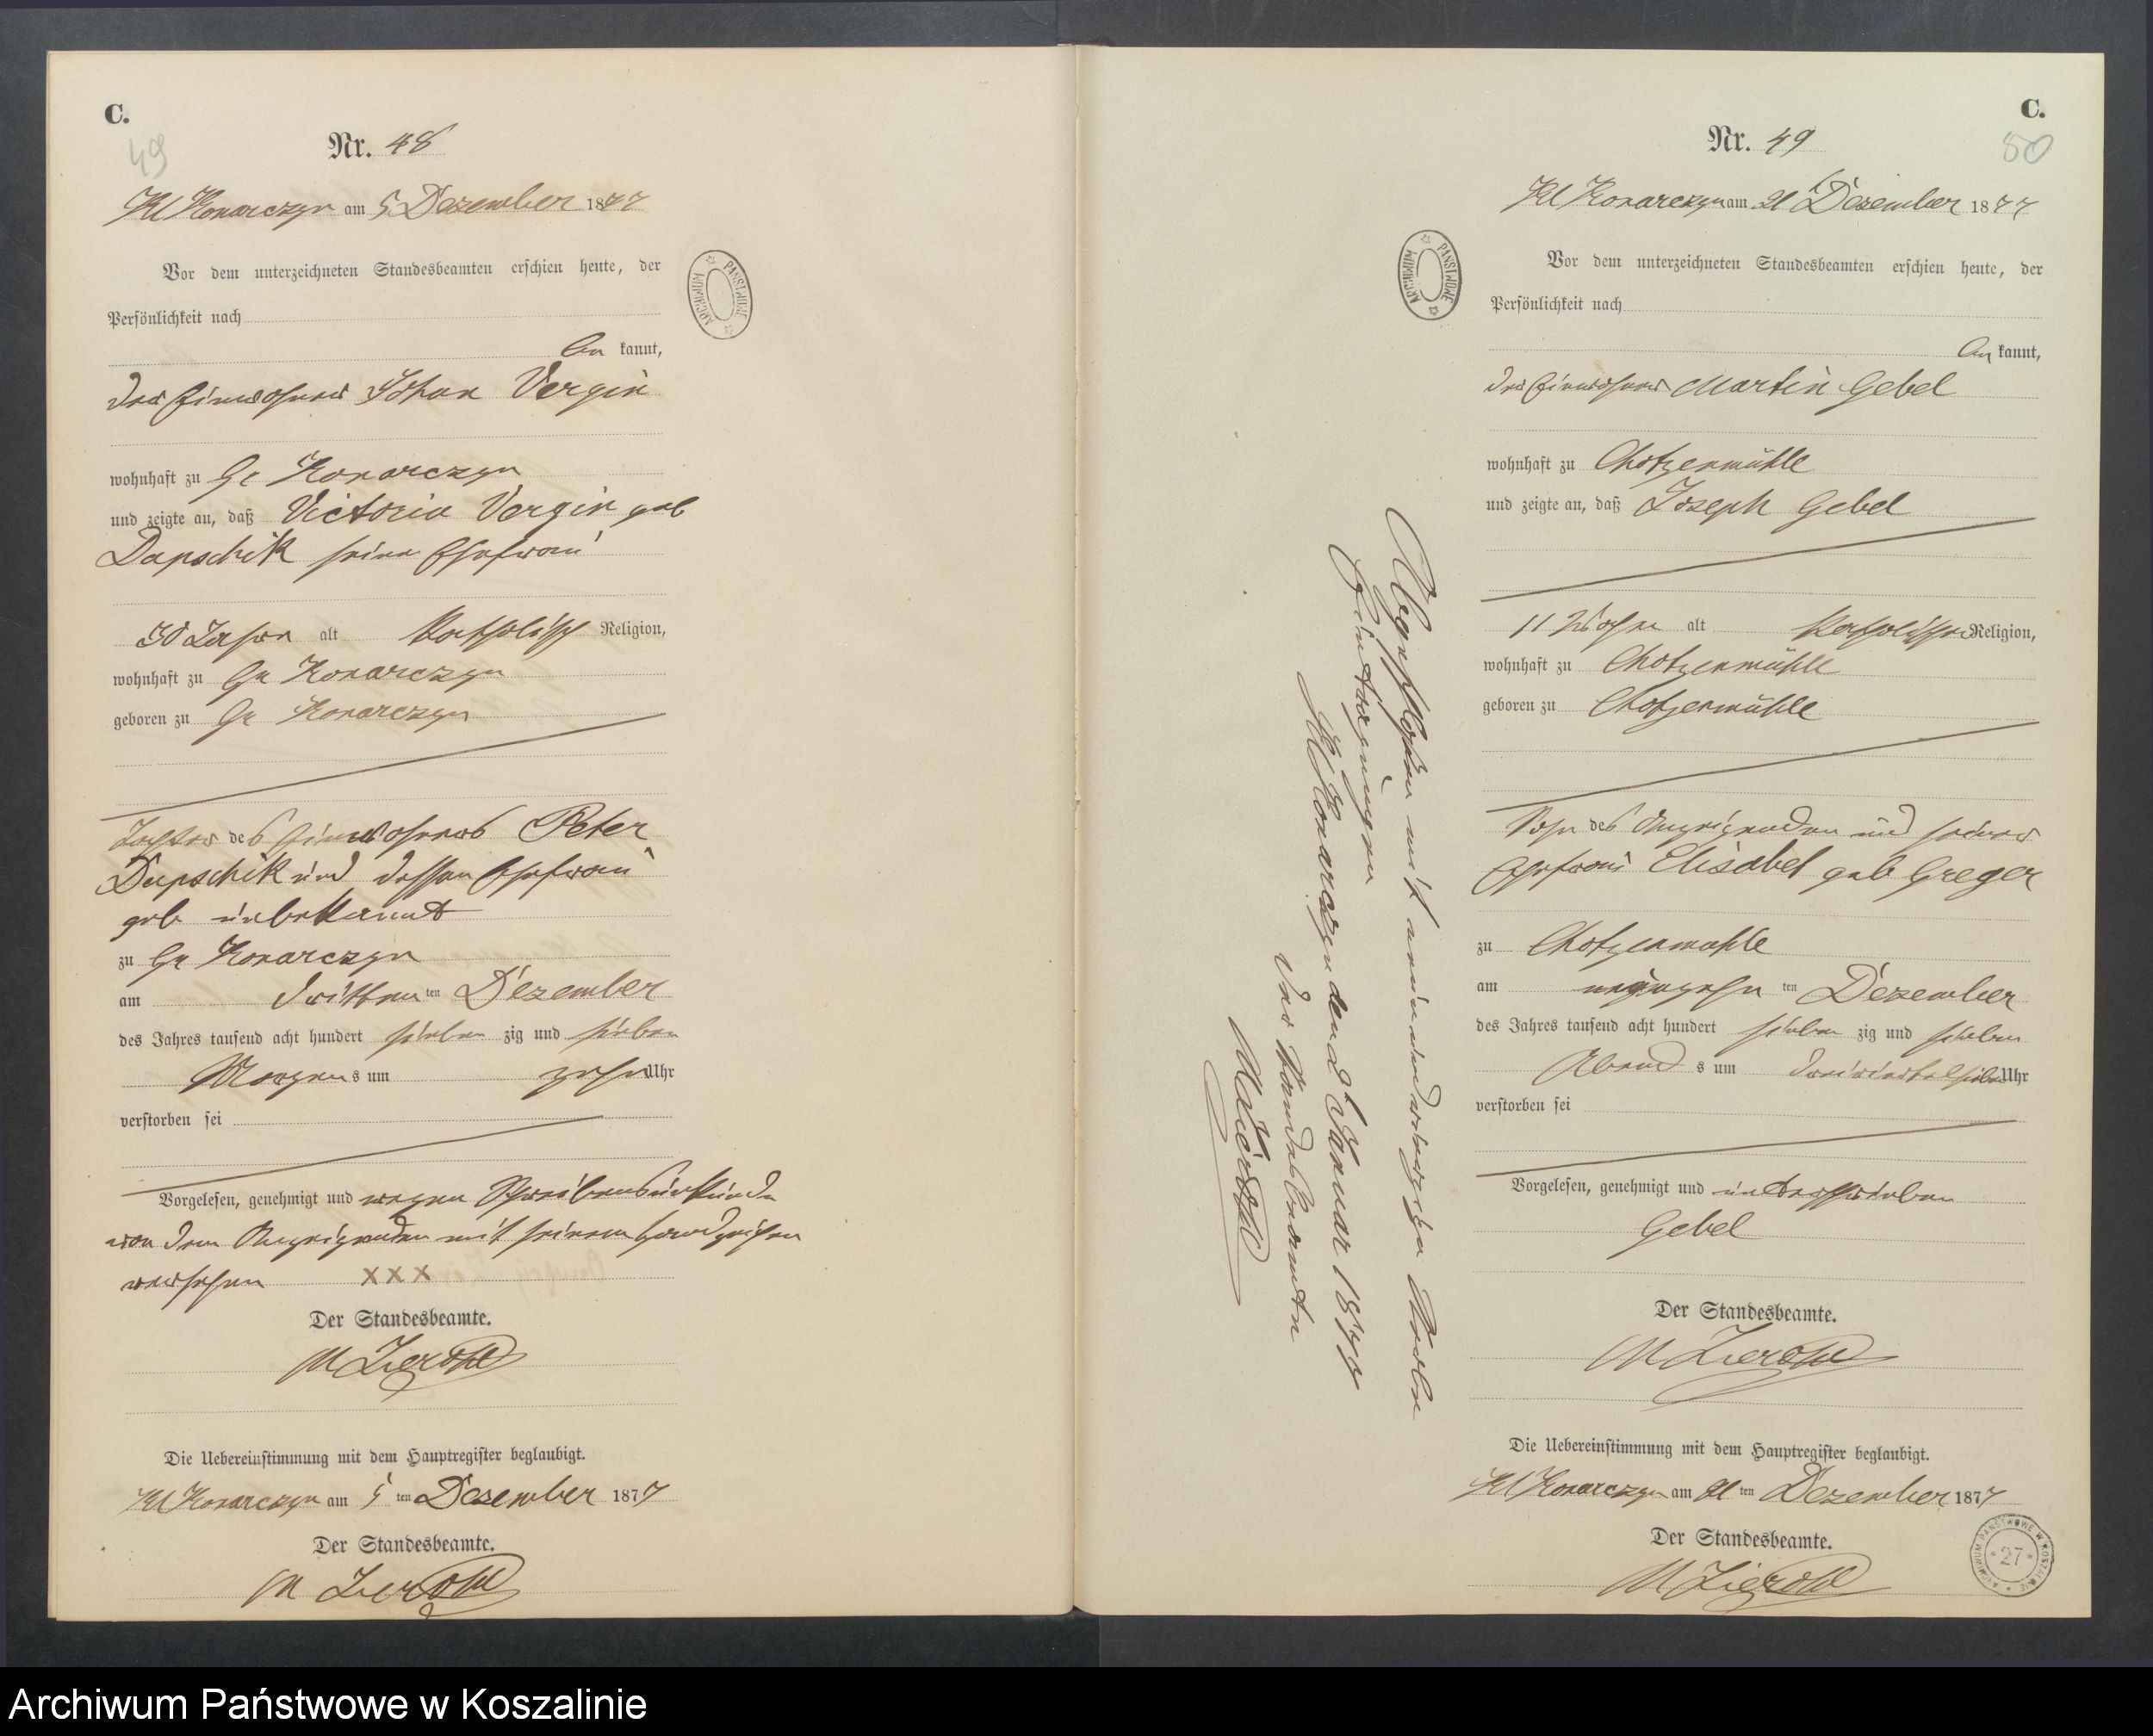 C.
49
Nr. 48
Kl Konarczyn am 5 Dezember 1877
Vor dem unterzeichneten Standesbeamten erschien heute, der
Persönlichkeit nach
be kannt,
der Einwohner Johan Vergin
wohnhaft zu Gr Konarczyn
und zeigte an, daß Victoria Vergin geb
Dapschik seine Ehefrau
30 Jahre alt Katholisch Religion,
wohnhaft zu Gr Konarczyn
geboren zu Gr Konarczyn
Tochter des Einwohners Peter
Dapschik und dessen Ehefrau
geb unbekannt
zu Gr Konarczyn
am dritten ten Dezember
des Jahres tausend acht hundert sieben zig und sieben
Morgens um zehn Uhr
verstorben sei
Vorgelesen, genehmigt und wegen Schreibensunkunde
von dem Anzeigenden mit seinem Handzeichen
versehen XXX
Der Standesbeamte.
M Zierohl
Die Uebereinstimmung mit dem Hauptregister beglaubigt.
Kl Konarczyn am 5 ten Dezember 1877
Der Standesbeamte.
M Zierohl
ARCHIWUM PAŃSTWOWE
C.
50
Nr. 49
Kl Konarczyn am 21 Dezember 1877
Vor dem unterzeichneten Standesbeamten erschien heute, der
Persönlichkeit nach
be kannt,
der Einwohner Martin Gebel
wohnhaft zu Chotzenmühle
und zeigte an, daß Joseph Gebel
11 Wochen alt Katholischer Religion,
wohnhaft zu Chotzenmühle
geboren zu Chotzenmühle
Sohn des Anzeigenden und seiner
Ehefrau Elisabet geb Greger
zu Chotzenmühle
am neunzehn ten Dezember
des Jahres tausend acht hundert sieben zig und sieben
Abends um dreiviertelsieben Uhr
verstorben sei
Vorgelesen, genehmigt und unterschrieben
Gebel
Der Standesbeamte.
M Zierohl
Die Uebereinstimmung mit dem Hauptregister beglaubigt.
Kl Konarczyn am 21 ten Dezember 1877
Der Standesbeamte.
M Zierohl
Abgeschlossen mit neunundvierzig
Eintragungen
Kl Konarczyn den Januar 187
Der Standesbeamte
M Zierohl
ARCHIWUM PAŃSTWOWE
ARCHIWUM PAŃSTWOWE W KOSZALINIE
27
Archiwum Państwowe w Koszalinie